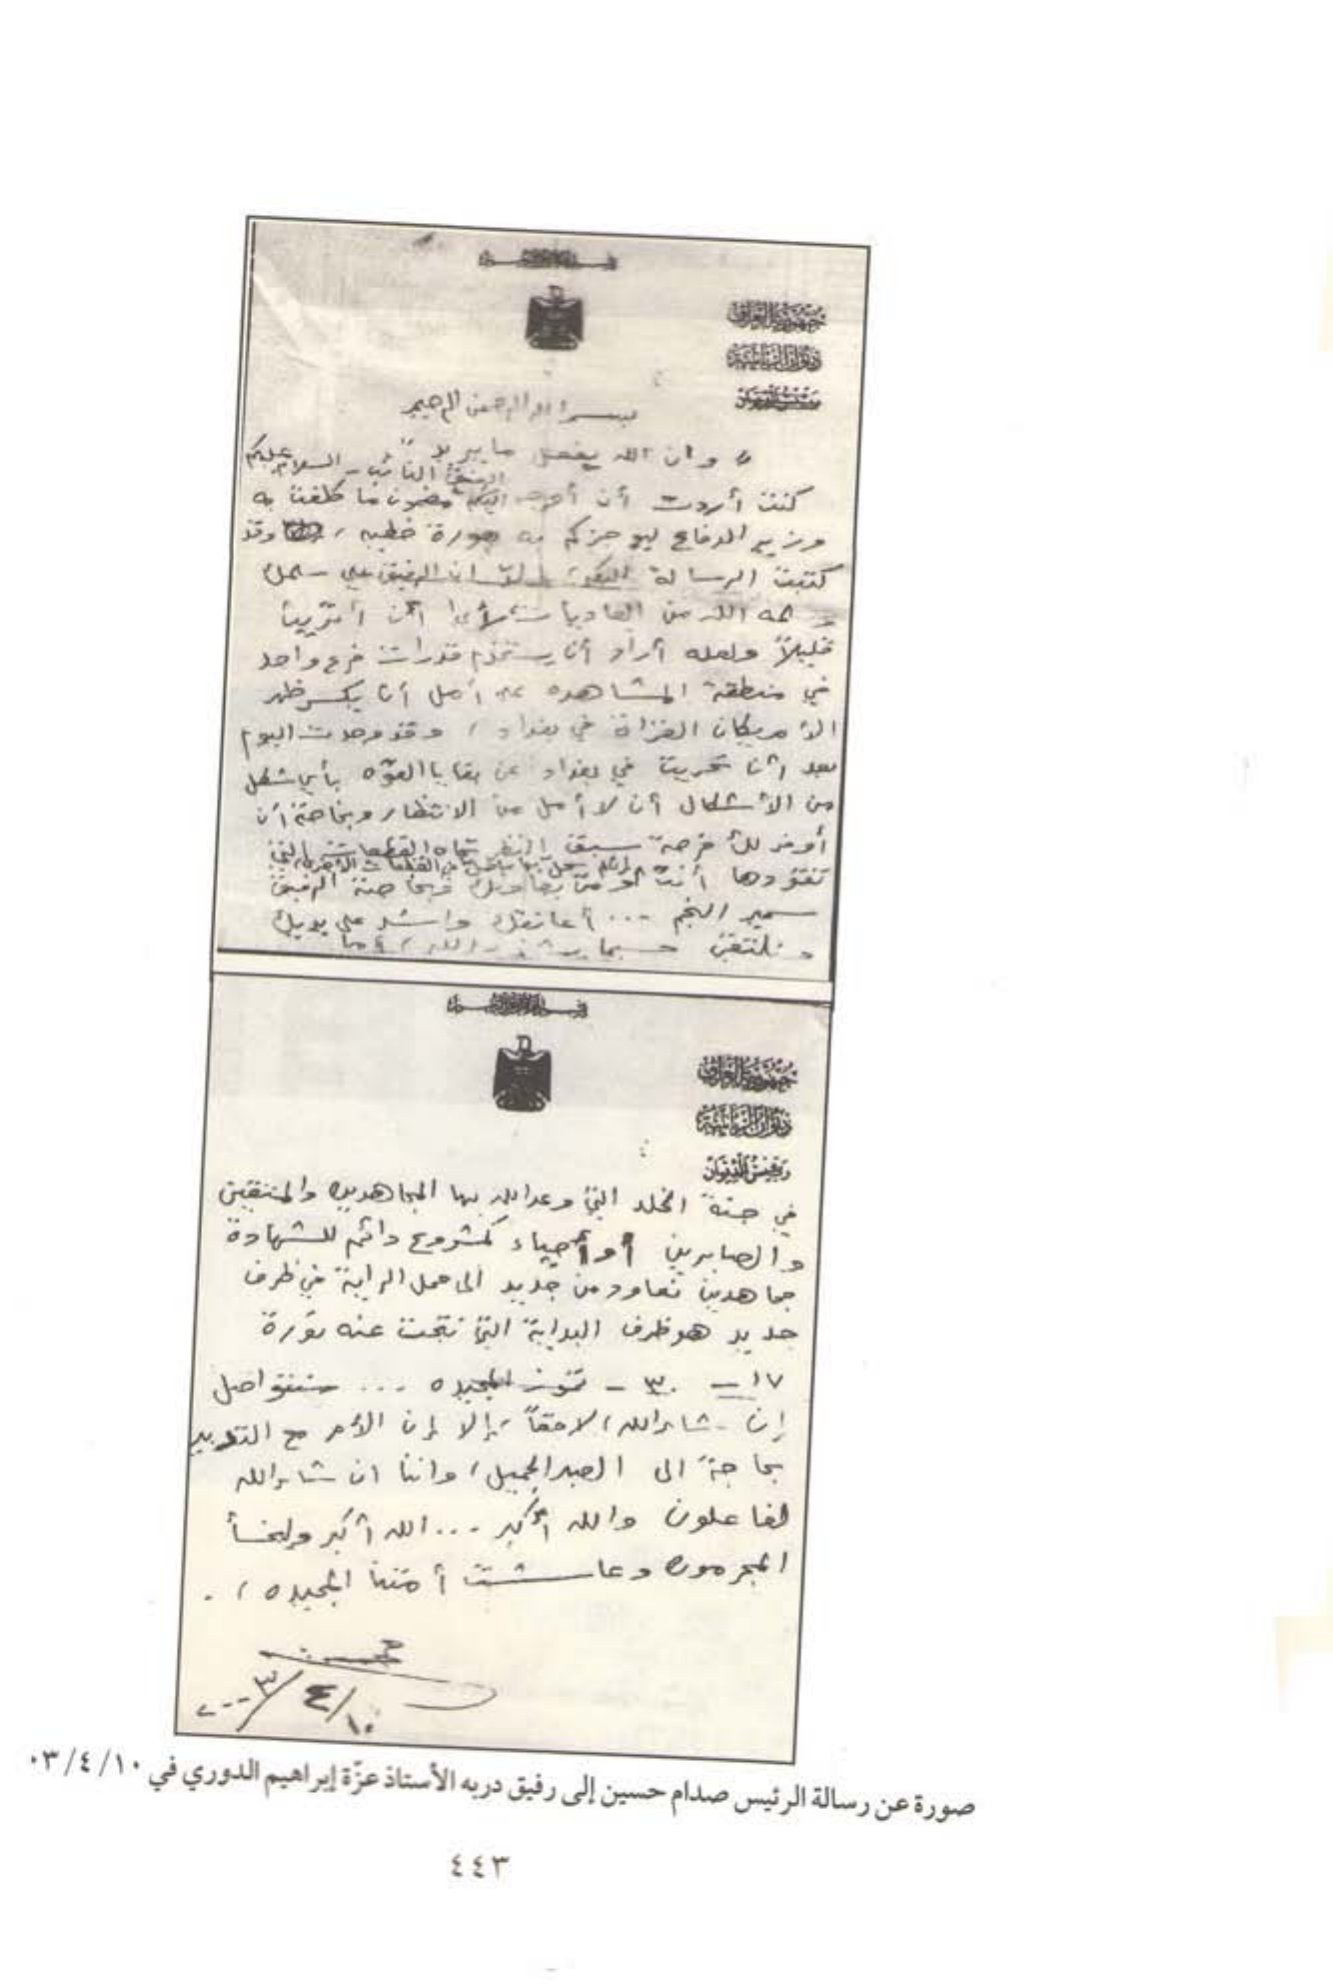 بسم الله الرحمن الرحيم
جمهورية العراق
ديوان الرئاسة
بسم الله الرحمن الرحيم
" وان الله يفعل ما يريد "
الرفيق النائب - السلام عليكم
كنت أردت أن إليكم مضمون ما كلفت به
وزير الدفاع ليوجزكم به صورة خطيه ، وقد
كتبت الرسالة ان الرفيق علي
الله من أكن
قليلاً ولعله أراد أن يستخدم قدرات فرع واحد
في منطقة المشاهده على أمل أن يكسر ظهر
الأمريكان الغزاة في بغداد ، وقد وجدت اليوم
بعد أن تحريت في بغداد عن بقايا القوه بأي شكل
من الأشكال أن لا أمل من الانتظار وبخاصة أن
أوفر لك فرصة سبق النظر تجاه القطعات التي
تقودها أنت ومن يعاونك وبخاصة الرفيق
سمير النجم ... أعانقك واشد على يديك
ونلتقي حسبما الله ، إما
بسم الله الرحمن الرحيم
جمهورية العراق
ديوان الرئاسة
رئيس الديوان
في جنة الخلد التي وعد الله بها المجاهدين والمتقين
والصابرين أو أحياء كمشروع دائم للشهادة
مجاهدين نعاود من جديد الى حمل الراية في ظرف
جديد هو ظرف البداية التي نتجت عنه ثورة
١٧ - ٣٠ - تموز المجيده ... سنتواصل
إن شاء الله ، لاحقاً ، إلا إن الأمر مع التدبير
بحاجة الى الصبر الجميل ، واننا ان شاء الله
لفاعلون والله أكبر ... الله أكبر وليخسأ
المجرمون وعاشت أمتنا المجيده ، .
١٠/٤/٢٠٠٣
صورة عن رسالة الرئيس صدام حسين إلى رفيق دربه الأستاذ عزّة إبراهيم الدوري في ٠٣/٤/١٠
٤٤٣